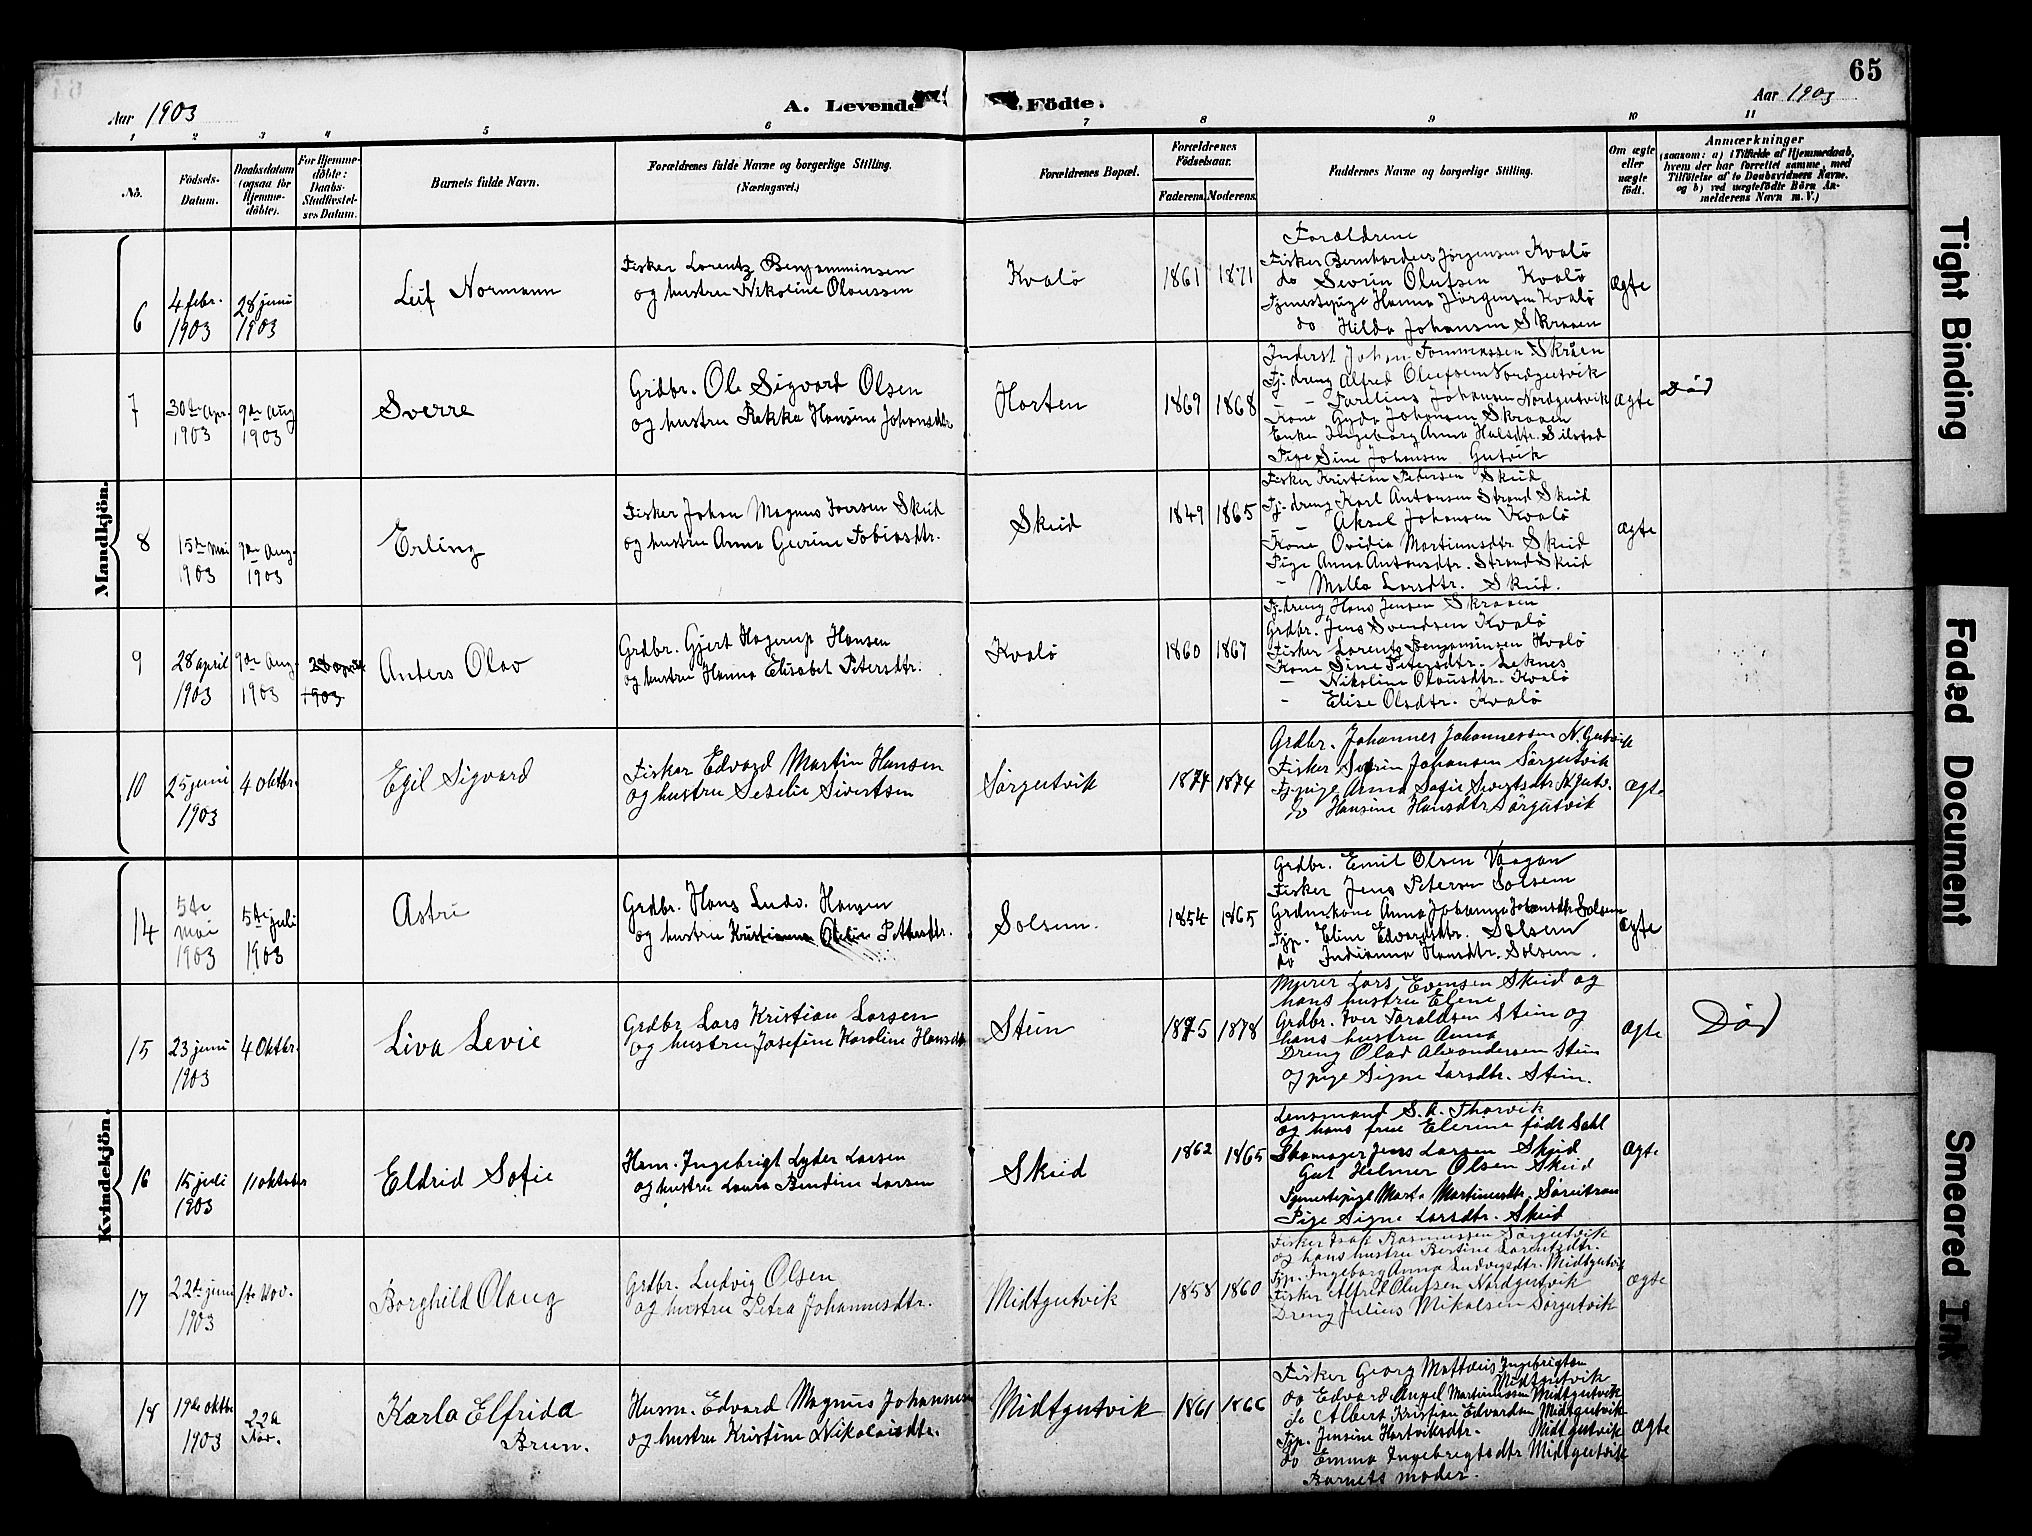 65
Aar 1903
A. Levende Fødte.
Aar 1903
1 2 3 4 5 6 7 8 9 10 11
No.
Fødsels-Datum.
Daabsdatum (ogsaa for Hjemme-døbte).
For Hjemme-døbte: Daabs-Stadfæstel-ses Datum.
Barnets fulde Navn.
Forældrenes fulde Navne og borgerlige Stilling. (Næringsvei.)
Forældrenes Bopæl.
Forældrenes Fødselsaar.
Faderens. Moderens.
Faddernes Navne og borgerlige Stilling.
Om ægte eller uægte født.
Anmærkninger
(saasom: a) i Tilfælde af Hjemmedaab, hvem der har forrettet samme, med Tilføielse af to Daabsvidners Navne. og b) ved uægtefødte Børn An-melderens Navn m. V.)
Mandkjøn.
6
4 febr. 1903
28 juni 1903
Leif Normann
Fisker Lorentz Benjaminsen
og hustru Nikoline Olaussen
Kvalø
1861 1871
Forældrene
Fisker Bernhardus Jørgensen Kvalø
do Sevrin Olufsen Kvalø
Tjenestepige Hanna Jørgensen Kvalø
do Hilda Johansen Skraaen
ægte
7
30te Apr. 1903
9de Aug 1903
Sverre
Grdbr. Ole Sigvard Olsen
og hustru Rekka Hansine Johansdtr
Horten
1869 1868
Inderst Johan Tommessen Skraaen
Tj. dreng Alfred Olufsen Nordgutvik
- - Johansen Nordgutvik
Kone Gyda Johansen Skraaen
Enke Ingeborg Anna Halsdtr. Silstad
Pige Sine Johansen Gutvik
ægte
Død
8
15te Mai 1903
9de Aug. 1903
Erling
Fisker Johan Magnus Iversen Skeid
og hustru Anna Gurine Tobiasdtr.
Skeid
1849 1865
Fisker Kristian Petersen Skeid
Tj. dreng Karl Antonsen Strand Skeid
- - Aksel Johansen Kvalø
Kone Ovidia Martinusdtr Skeid
Pige Anna Antonsdtr. Strand Skeid
- Malla Larsdtr. Skeid.
ægte
9
28 april 1903
9de Aug. 1903
28 april 1903
Anders Olav
Grdbr. Gjert Hagerup Hansen
og hustru Hanna Elisabet Petersdtr.
Kvalø
1860 1867
Tj. dreng Hans Jensen Skraaen
Grdbr. Jens Svendsen Kvalø
Fisker Lorentz Benjaminsen Kvalø
Kone Sine Petersdtr. Leknes
- Nikoline Olausdtr. Kvalø
- Elise Olsdtr. Kvalø
10
25 juni 1903
4 Oktbr.
Egil Sigvard
Fisker Edvard Martin Hansen
og hustru Seselie Sivertsen
Sørgutvik
1874 1874
Grdbr. Johannes Johannessen N. Gutvik
Fisker Sevrin Johansen Sørgutvik
Tj. pige Anna Sofie Sivertsdtr N. Gutv.
do Hansine Hansdtr Sørgutvik
ægte
Kvindekjøn.
14
5te mai 1903
5te juli 1903
Astri
Grdbr. Hans Ludv. Hansen
og hustru Kristianna Oleline Pettersdtr.
Solsem.
1854 1865
Grdbr. Emil Olsen Vaagan
Fisker Jens Petersen Solsem
Grdm.kone Anna Johanna Johansdtr Solsem
Tjp. Eline Edvardsdtr. Solsem
do Indianna Hansdtr. Solsem.
ægte
15
23 juni 1903
4 Oktbr.
Liva Levie
Grdbr Lars Kristian Larsen
og hustru Josefine Karoline Hansdtr
Stein
1875 1878
Murer Lars Evensen Skeid og
hans hustru Elene
Grdbr. Iver Taraldsen Stein og
hans hustru Anna
Dreng Olaf Alexandersen Stein
og pige Signe Larsdtr. Stein.
ægte
Død
16
15 juli 1903
11 oktober
Eldrid Sofie
Ham. Ingebrigt Lyder Larsen
og hustru Laura Bendine Larsen
Skeid
1862 1865
Lensmand S. A. Thorvik
og hans frue Elerine født Dahl
Skomager Jens Larsen Skeid
Gut Helmer Olsen Skeid
Tjenestepige Marta Martinusdtr. Søreitran
Pige Signe Larsdtr. Skeid
ægte
17
22de juni 1903
1te Nov.
Borghild Olaug
Grdbr. Ludvig Olsen
og hustru Petra Johannesdtr.
Midtgutvik
1858 1860
Fisker Isak Rasmussen Sørgutvik
og hans hustru Bertine Lorentzdtr.
Tjp. Ingeborg Anna Ludvigsdtr. Midtgutvik
Fisker Alfred Olufsen Nordgutvik
Dreng Julius Mikalsen Sørgutvik
ægte
18
19de oktbr 1903
22de Nov.
Karla Elfrida Brun.
Husm. Edvard Magnus Johannesen
og hustru Kristine Nikolaisdtr.
Midtgutvik
1861 1866
Fisker Georg Mattæus Ingebrigtsen Midtgutvik
do Edvard Angel Martinussen Midtgutvik
do Albert Kristian Edvardsen Midtgutvik
Tjp. Jensine Hartviksdtr. Midtgutvik
do Emma Ingebrigtsdtr Midtgutvik
Barnets moder.
ægte
Tight Binding
Faded Document
Smeared Ink